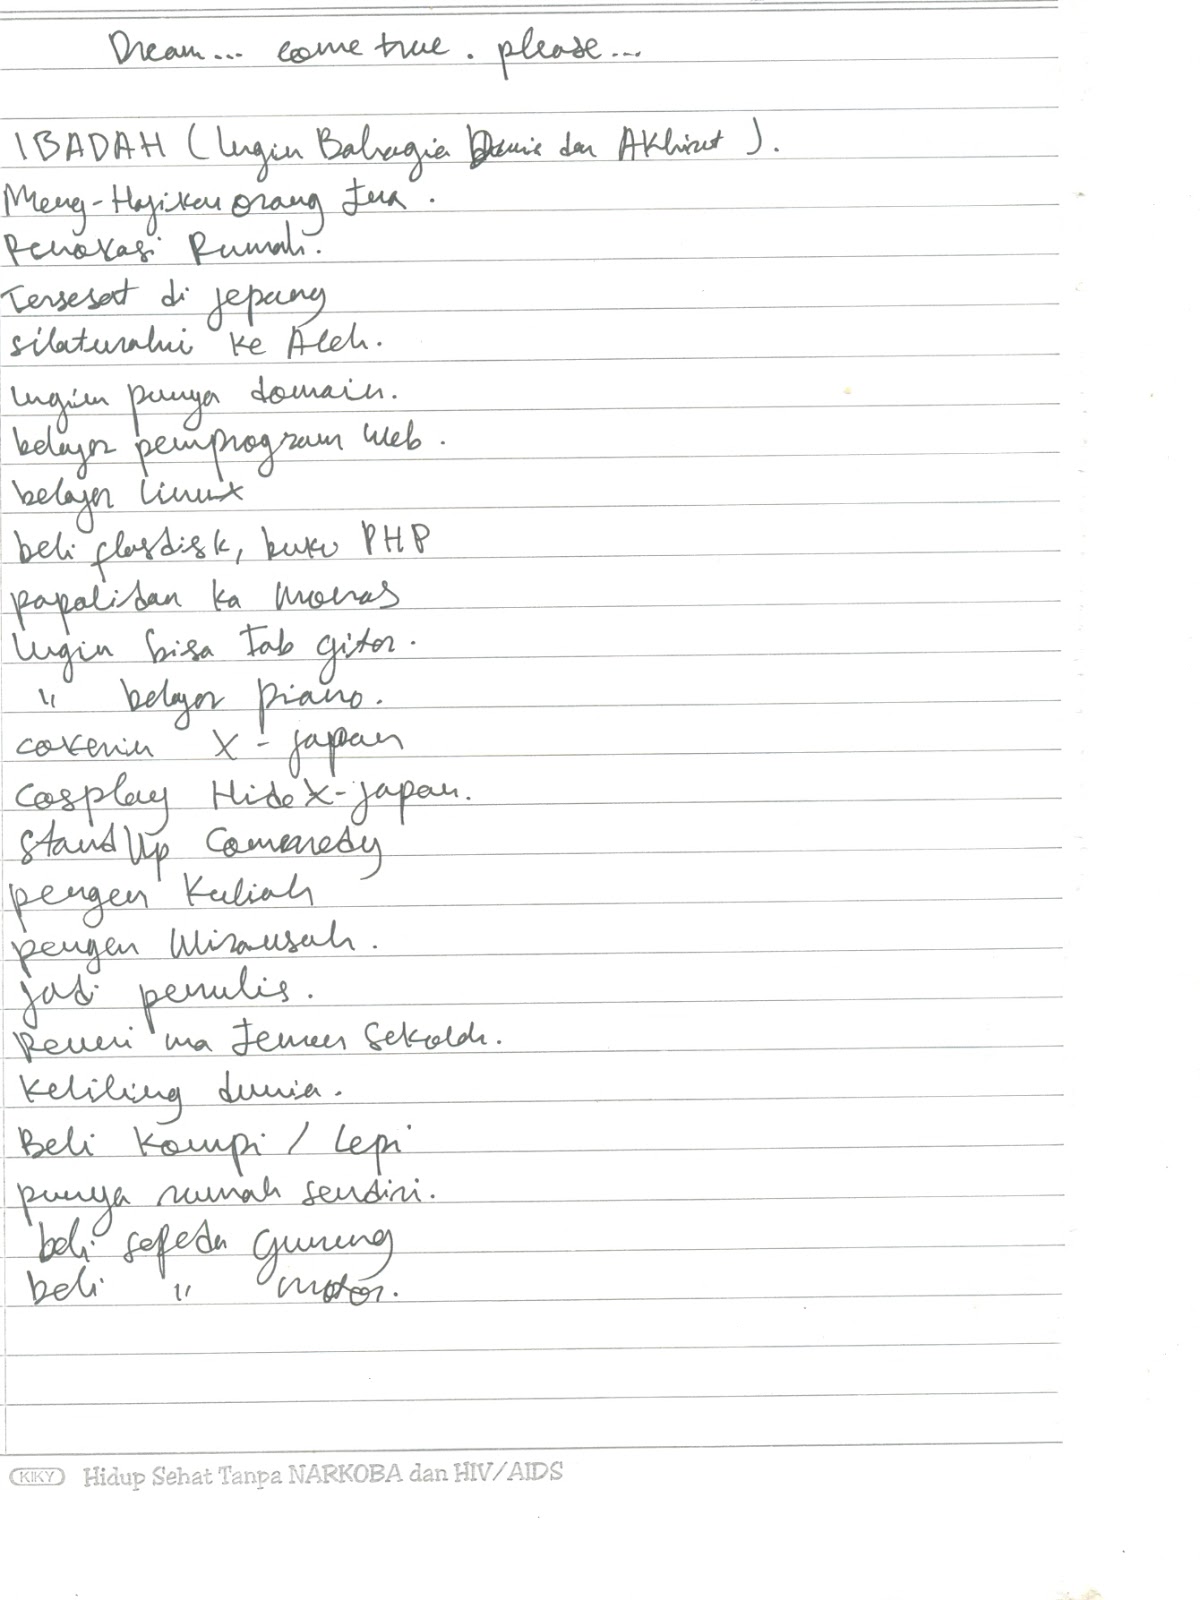 Dream... come true. please...
IBADAH (Ingin Bahagia Dunia dan Akhirat).
Meng-Hajikan orang tua.
Renovasi Rumah.
Tersesat di jepang
silaturahi ke Aceh.
Ingin punya domain.
belajar pemprogram Web.
belajar linux
beli flasdisk, buku PHP
papalidan ka Monas
Ingin bisa Tab gitar.
" belajar piano.
coverin X-japan
Cosplay Hide X-japan.
Stand Up Comenedy
pengen Kuliah
pengen Wirausah.
jadi penulis.
Reuni ma temen Sekolah.
Keliling dunia.
Beli Kompi / Lepi
punya rumah sendiri.
beli sepeda gunung
beli " motor.
KIKY Hidup Sehat Tanpa NARKOBA dan HIV/AIDS